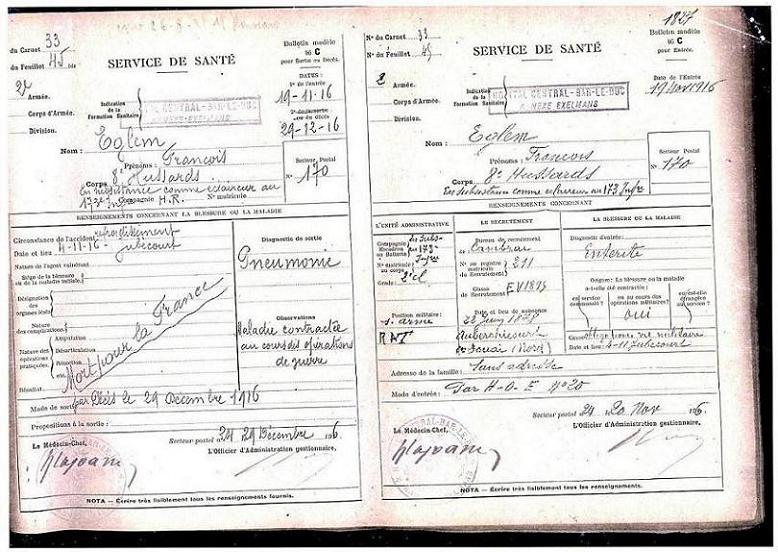 33
du Carnet
du Feuillet 45 bis
SERVICE DE SANTÉ
Bulletin modèle
96 C
pour Sortie ou Décès.
2e Armée.
Corps d'Armée.
Division.
Indication
de la
Formation Sanitaire
HOPITAL CENTRAL-BAR-LE-DUC
ANNEXE EXELMANS
DATES:
1° de l'entrée
19-11-16
2° de la sortie
ou du décès
29-12-16
Nom: Eglem
Prénoms: François
Corps 8e Hussards
En subsistance comme éclaireur au
173e Infie Compagnie H.R. N° matricule
Secteur Postal
N° 170
RENSEIGNEMENTS CONCERNANT LA BLESSURE OU LA MALADIE
Circonstance de l'accident refroidissement
Date et lieu: 4-11-16 - Jubécourt
Nature de l'agent vulnérant
Siège de la blessure
ou de la maladie initiale.
Désignation
des
organes lésés
Nature
des complications
Nature des
opérations
pratiquées.
Amputation
Désarticulation
Résection
etc.
Résultat.
Mort pour la France
Diagnostic de sortie
Pneumonie
Observations
Maladie contractée
au cours des opérations
de guerre
Mode de sortie: par Décès le 29 Décembre 1916
Propositions à la sortie:
Secteur postal 24 29 Décembre 1916
Le Médecin-Chef,
L'Officier d'Administration gestionnaire,
NOTA — Écrire très lisiblement tous les renseignements fournis.
1827
N° du Carnet 33
N° du Feuillet 45
SERVICE DE SANTÉ
Bulletin modèle
96 C
pour Entrée.
2 Armée.
Corps d'Armée.
Division.
Indication
de la
Formation Sanitaire
HOPITAL CENTRAL-BAR-LE-DUC
ANNEXE EXELMANS
Date de l'Entrée
19 Nov 1916
Nom: Eglem
Prénoms: François
Corps 8e Hussards
En subsistance comme éclaireur au 173 Infie
Secteur Postal
N° 170
RENSEIGNEMENTS CONCERNANT
L'UNITÉ ADMINISTRATIVE
Compagnie
Escadron
ou Batterie
au 173e
Infie
N° matricule
au corps
Grade: 2e cl
Position militaire
s. arme
RAT
LE RECRUTEMENT
Bureau de recrutement
de Cambrai
N° au registre
matricule
de Recrutement
211
Classe
de Recrutement
EV 1895
Date et lieu de naissance
22 Juin 1878
Auberchicourt
Douai (Nord)
LA BLESSURE OU LA MALADIE
Diagnostic d'entrée:
Entérite
Origine: La blessure ou la maladie
a-t-elle été contractée:
en service
commandé?
en cours
des opérations
militaires?
ou est-elle
étrangère
au service?
oui
Causes: obligations vie militaire
Date et lieu: 4-11 Jubécourt
Adresse de la famille: Sans adresse
Mode d'entrée: Par H.O.E. N° 20
Secteur postal 24 20 Nov 1916
Le Médecin-Chef,
L'Officier d'Administration gestionnaire,
NOTA — Écrire très lisiblement tous les renseignements.